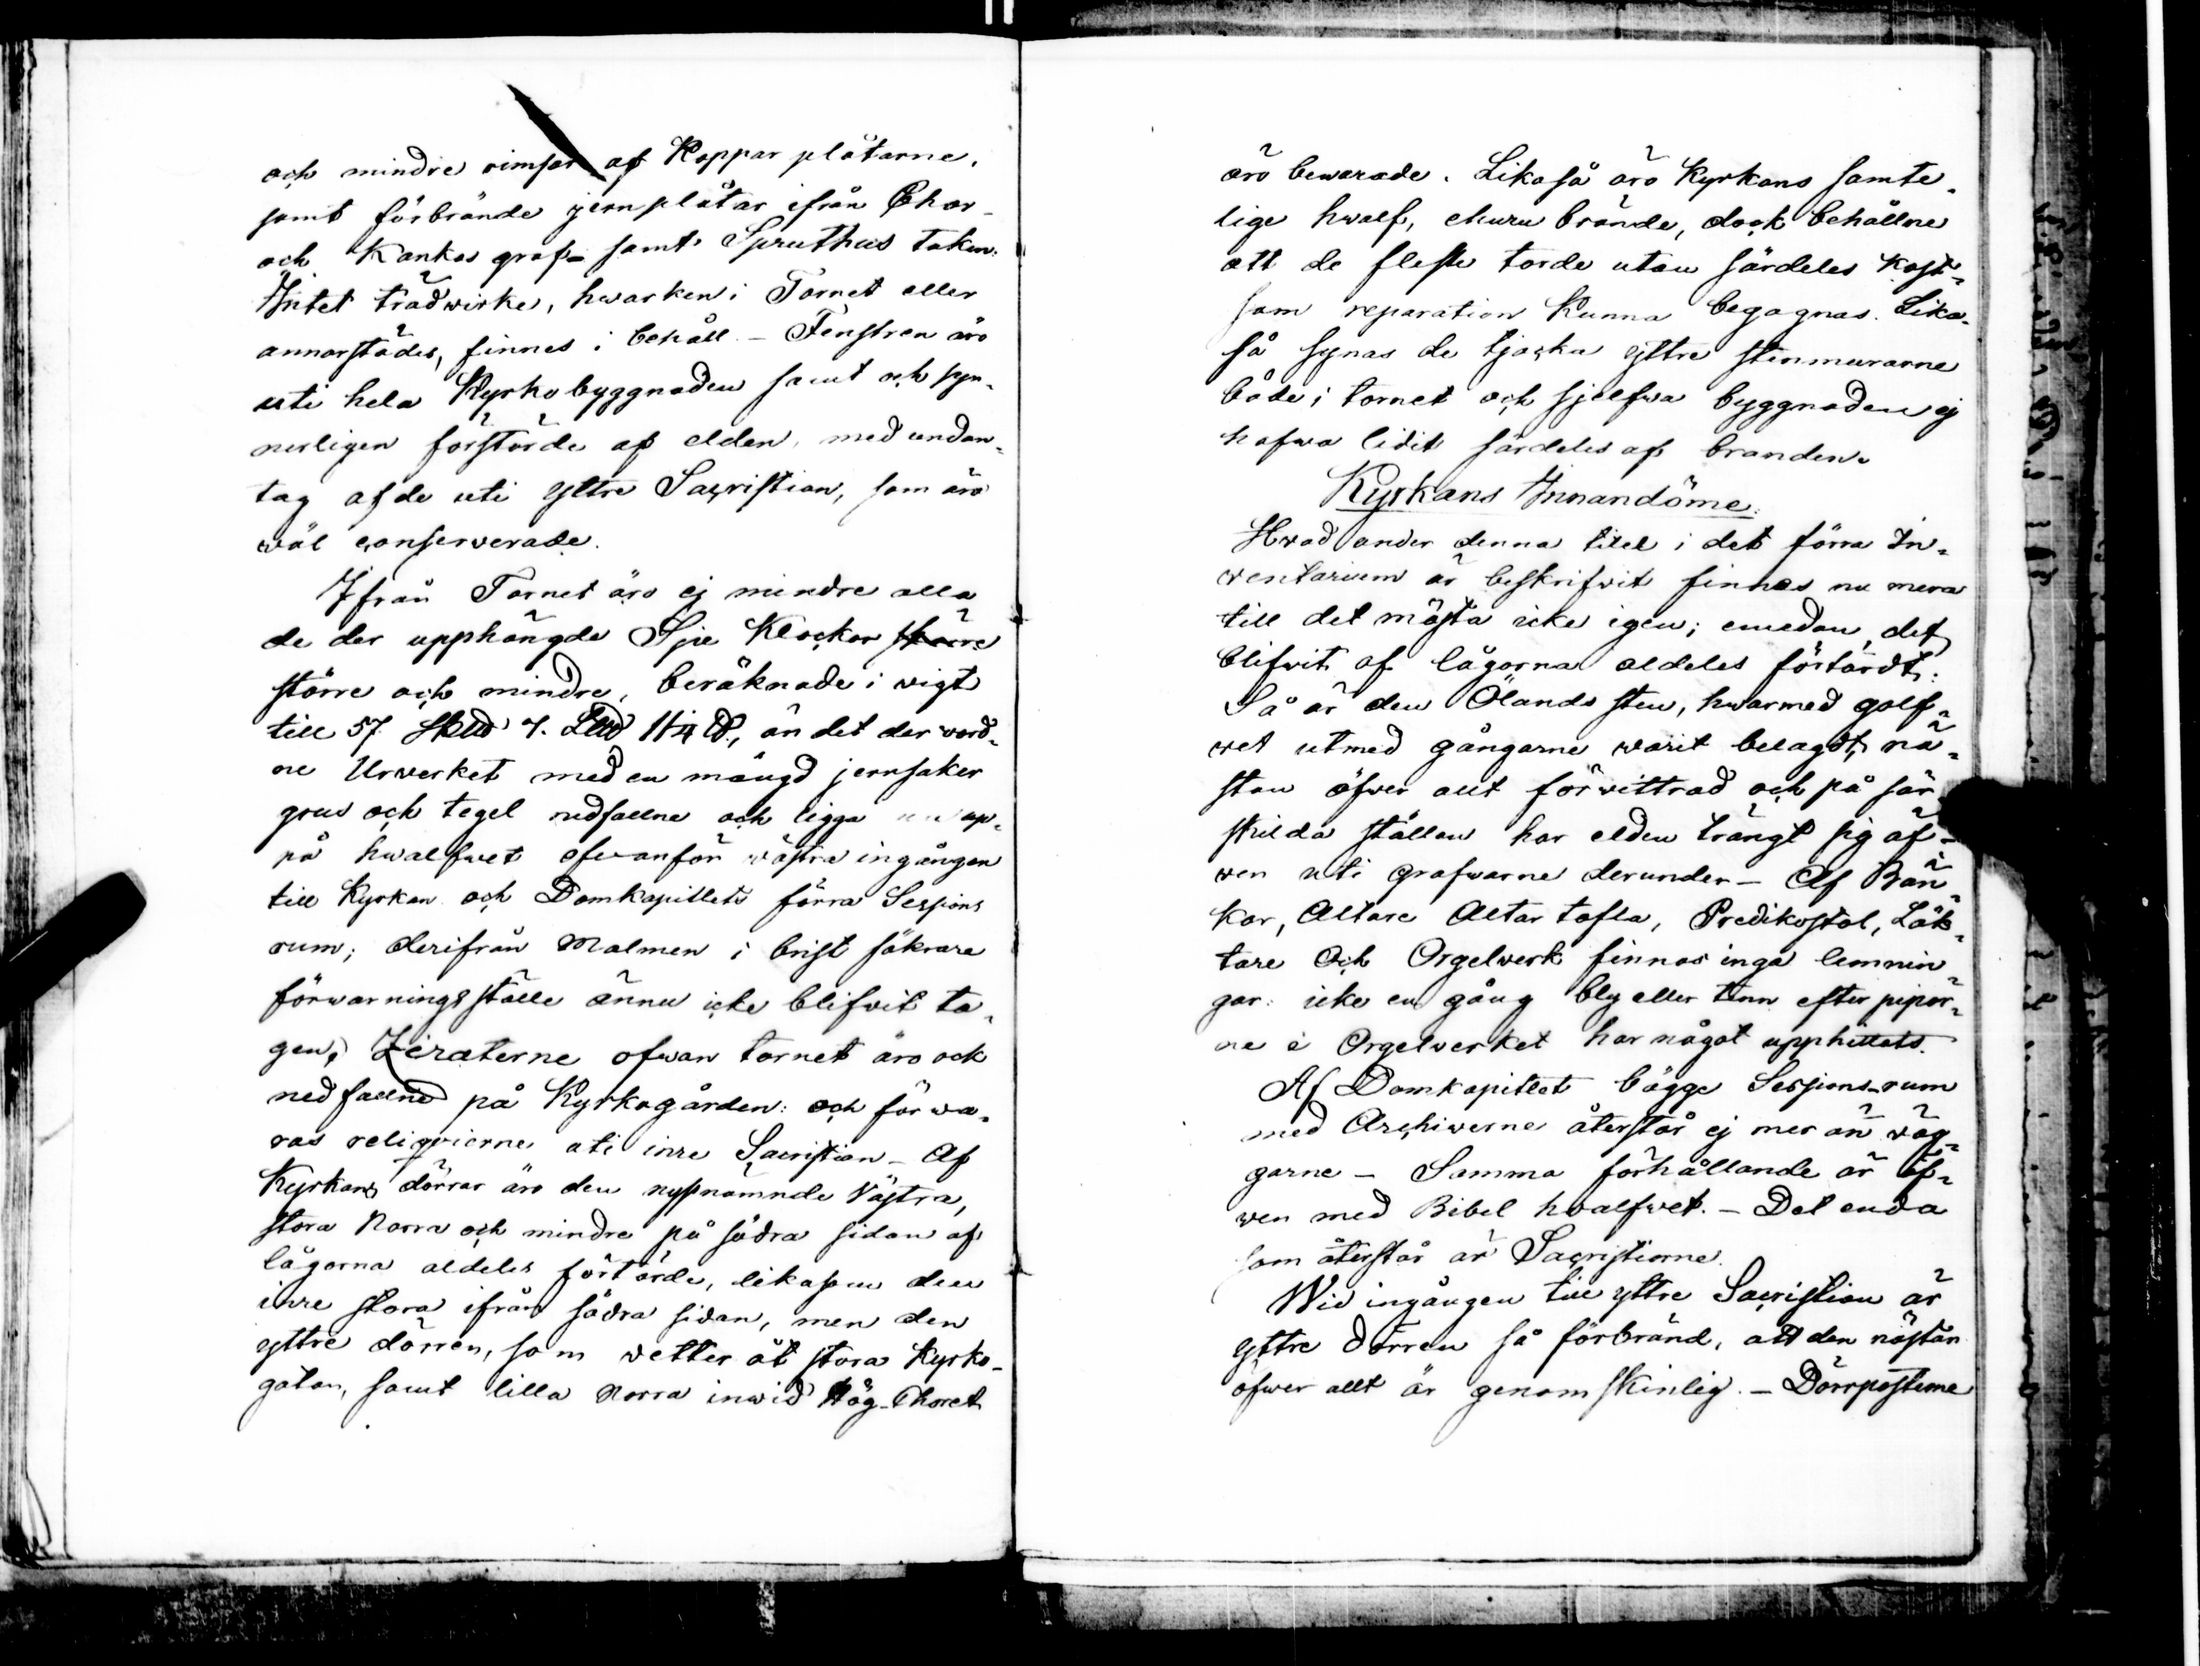 och mindre rimsor af Koppar plåtarne,
samt förbrände jernplåtar ifrån Chor-
och Kankas graf- samt Spruthus taken.
Intet trädwirke, hwarken i Tornet eller
annorstädes, finnes i behåll. - Fenstren äro
uti hela Kyrkobyggnaden samt och syn-
nerligen förstörde af elden, med undan-
tag af de uti yttre Sacristian, som äro
wäl conserverade.
Ifrån Tornet äro ej mindre alla
de der upphängde Sju Klockor
större och mindre, beräknade i wigt
till 57. 7. än det der word-
ne Urverket med en mängd jernsaker
grus och tegel nedfallne och ligga nu up-
på hwalfwet ofwanför wästra ingången
till Kyrkan och Domkapitlets förra Sessions
rum; derifrån Malmen i brist säkrare
förwarningsställe ännu icke blifvit ta-
gen. Ziraterne ofwan tornet äro ock
nedfallne på Kyrkogården: och förwa-
ras reliqvierne uti inre Sacristian - Af
Kyrkans dörrar äro den nyssnämnde Västra,
stora Norra och mindre på södra sidan af
lågorna aldeles förtärde, likasom den
inre stora ifrån södra sidan, men den
yttre dörren, som vetter åt stora Kyrko-
gatan, samt lilla Norra inwid Hög-Choret
äro bewarade. Likaså äro Kyrkans samte-
lige hwalf, ehuru brände, dock behållne
att de fleste torde utan särdeles kost-
sam reparation kunna begagnas. Lika-
så synas de tjocka yttre stenmurarne
både i tornet och sjelfwa byggnaden ej
hafwa lidit särdeles af branden.
Kyrkans Innandöme.
Hwad under denna titel i det förra In-
ventarium är beskrifvit finnes nu mera
till det mästa icke igen; emedan det
blifvit af lågorna aldeles förtärdt.
Så är den Ölands sten, hwarmed golf-
wet utmed gångarne warit belagdt, nä-
stan öfwer allt förwittrad och på sär-
skilda ställen har elden trängt sig äf-
wen uti grafwarne derunder - Af Bän-
kar, Altare Altar tafla, Predikostol, Läk-
tare Och Orgelverk finnas inga lemnin-
gar: icke en gång bly eller tenn efter pipor-
ne i Orgelverket har något upphittats.
Af Domkapitlet bägge Sessions-rum
med Archiverne återstår ej mer än väg-
garne - Samma förhållande är äf-
wen med Bibel hvalfvet. - Det enda
som återstår är Sacristiorne.
Wid ingången till yttre Sacristian är
yttre dörren så förbränd, att den nästan
öfwer allt är genomskinlig. - Dörrposterne